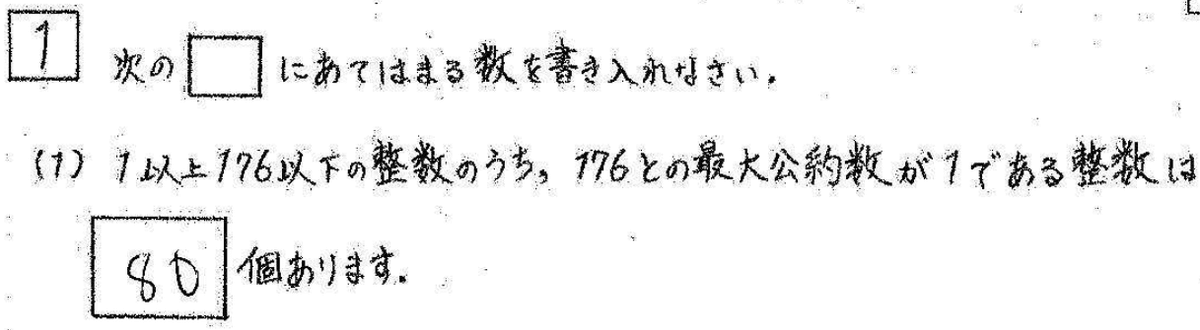 1 次の□にあてはまる数を書き入れなさい。
(1) 1以上176以下の整数のうち、176との最大公約数が1である整数は
80 個あります。